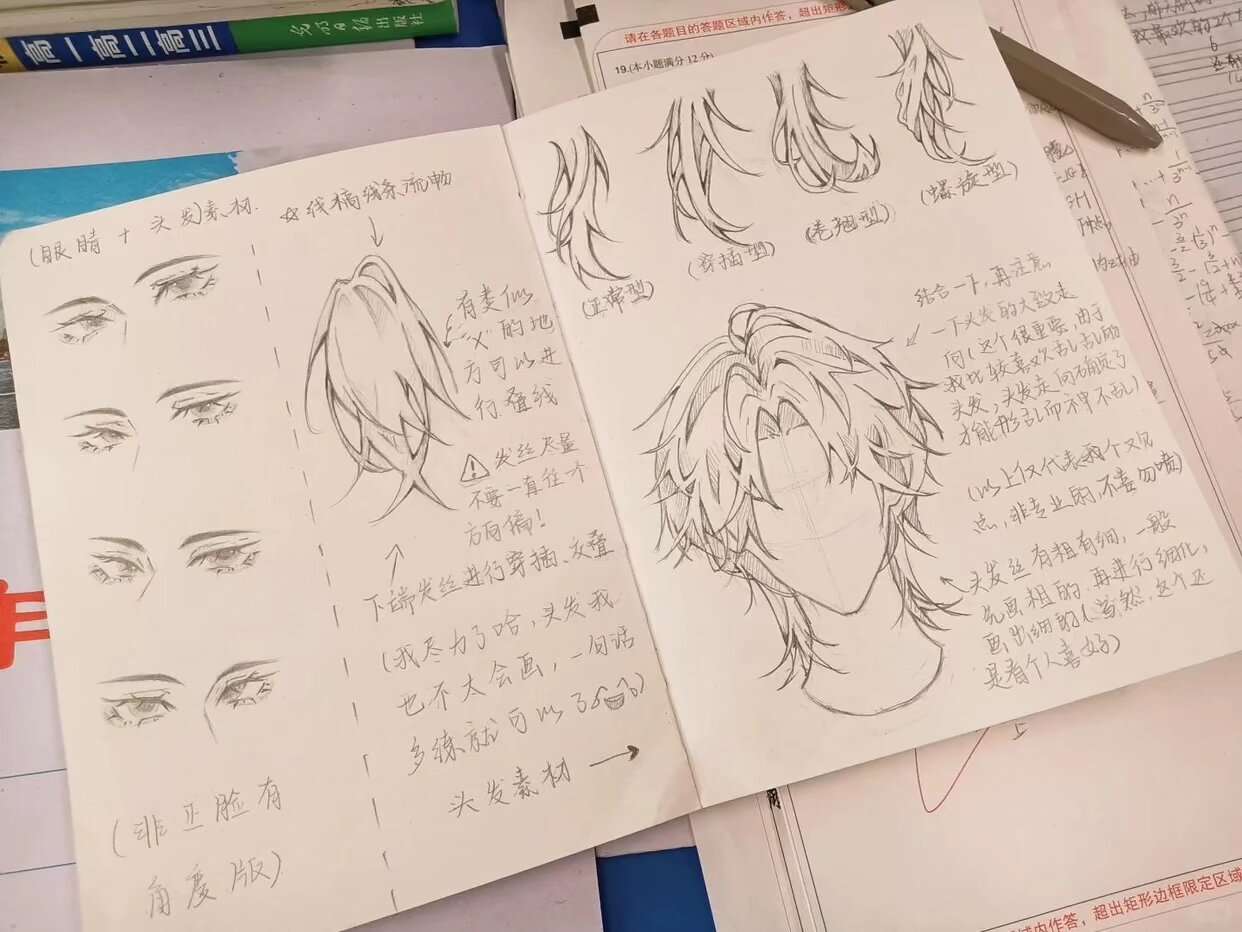 高一高二高三
光明日报出版社
请在各题目的答题区域内作答，超出矩形
19.(本小题满分12分)
(眼睛+头发素材.
☆线稿线条流畅
有类似
“x”的地
方可以进
行叠线
⚠发丝尽量
不要一直往一个
方向偏！
下端发丝进行穿插、交叠
(我尽力了哈，头发我
也不太会画，一句话
多练就可以了
头发素材→
(非正脸有
角度版)
(正常型)
(穿插型)
(卷翘型)
(螺旋型)
结合一下，再注意
一下头发的大致走
向(这个很重要，由于
我比较喜欢乱乱的
头发，头发走向确定了
才能形乱而神不乱)
(以上仅代表我个人观
点，非专业的，不喜勿喷)
头发丝有粗有细，一般
先画粗的，再进行细化，
画出细的(当然，这个还
是看个人喜好)
域内作答，超出矩形边框限定区域